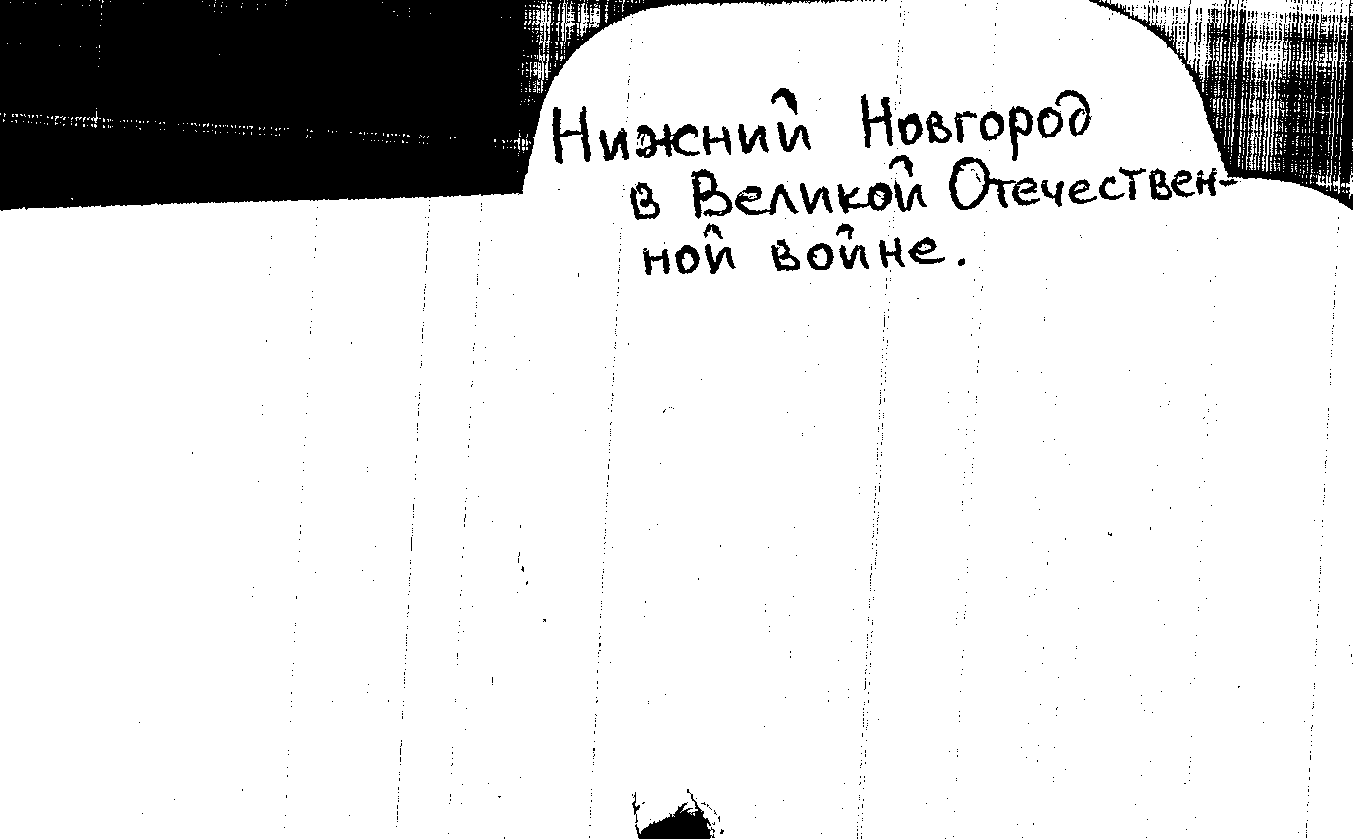 Нижний Новгород
в Великой Отечествен-
ной войне.